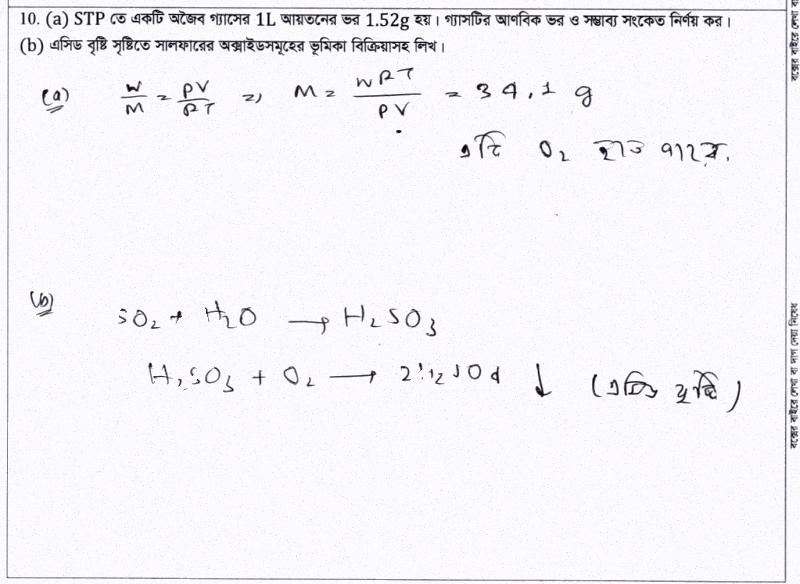 10. (a) STP তে একটি অজৈব গ্যাসের 1L আয়তনের ভর 1.52g হয়। গ্যাসটির আণবিক ভর ও সম্ভাব্য সংকেত নির্ণয় কর।
(b) এসিড বৃষ্টি সৃষ্টিতে সালফারের অক্সাইডসমূহের ভূমিকা বিক্রিয়াসহ লিখ।
(a) W/M = PV/RT => M = WRT/PV = 34.1 g
এটি O₂ হতে পারে.
(b) SO₂ + H₂O → H₂SO₃
H₂SO₃ + O₂ → 2H₂SO4 ↓ (এসিড বৃষ্টি)
বক্সের বাইরে লেখা বা দাগ দেয়া নিষেধ